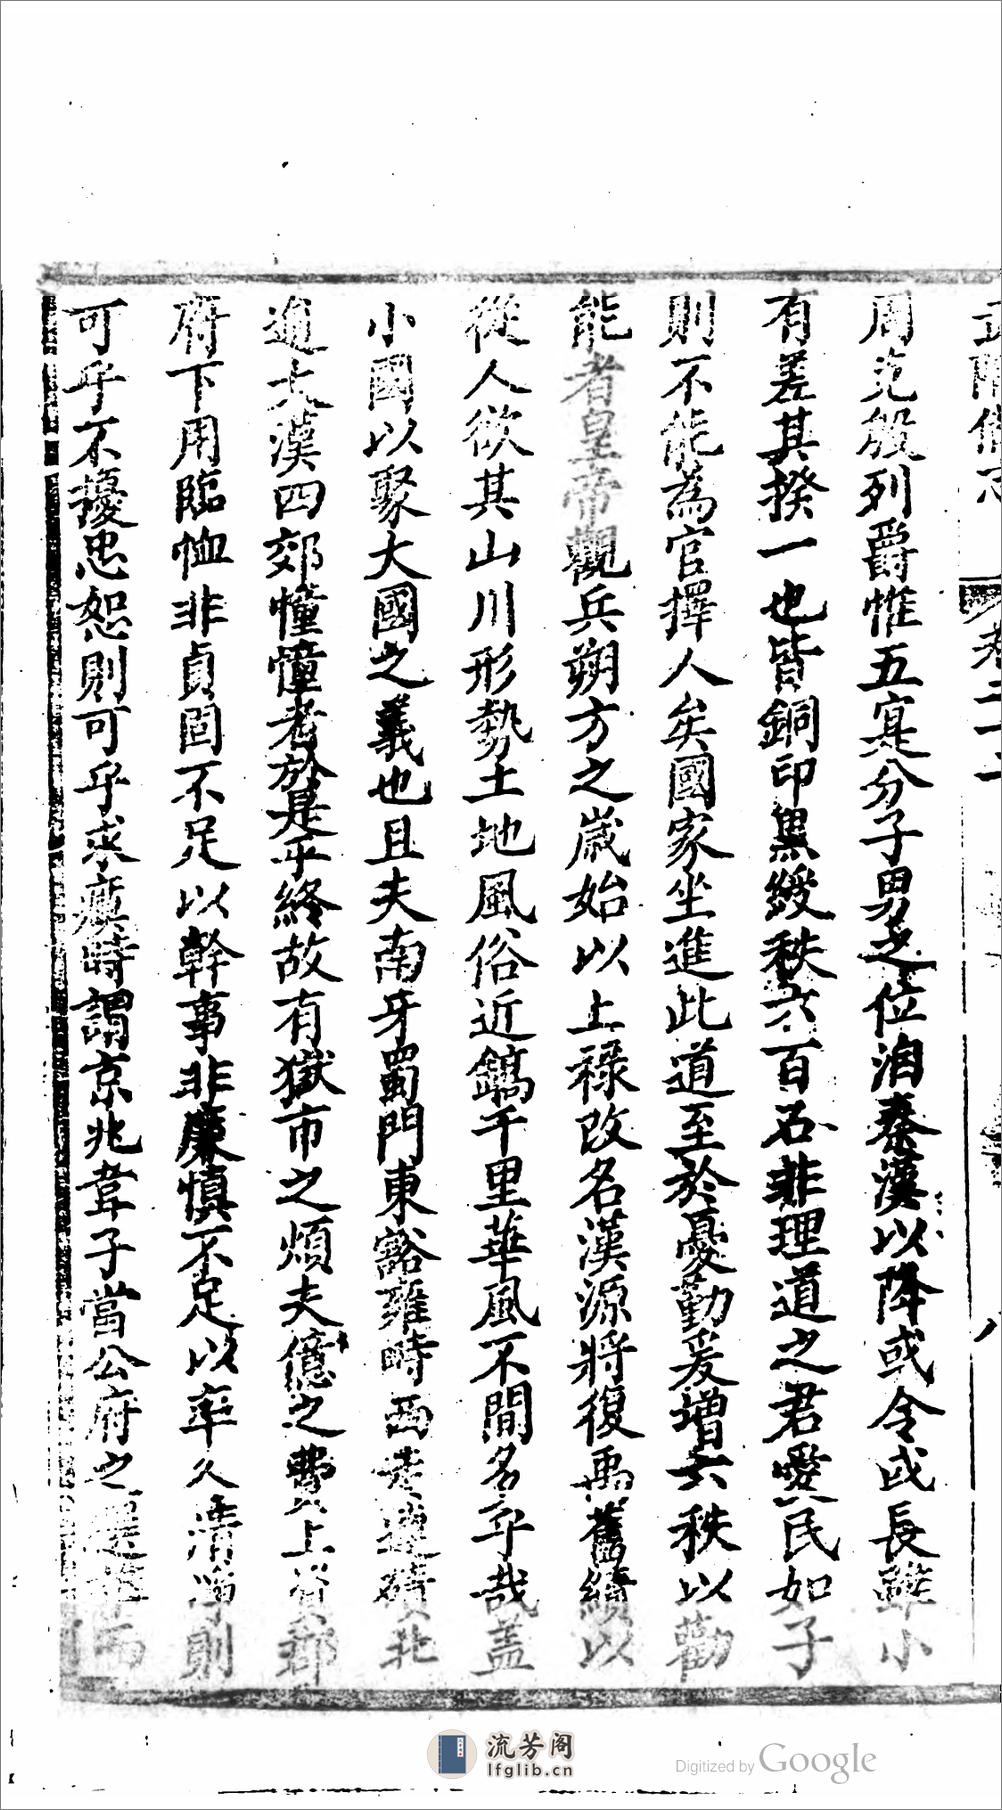 卷二十
八
周克殷列爵惟五寔分子男之位洎秦漢以降或令或長雖小
有差其揆一也皆銅印黑綬秩六百石非理道之君愛民如子
則不能為官擇人矣國家坐進此道至於憂勤爰增六秩以勸
能者皇帝觀兵朔方之歲始以上祿改名漢源將復禹舊績以
從人欲其山川形勢土地風俗近鎬千里華風不間名乎哉蓋
小國以聚大國之義也且夫南牙蜀門東豁雍畤西走連磧北
逾大漢四郊憧憧者於是乎終故有獄市之煩夫億之費上資郡
府下用臨恤非貞固不足以幹事非廉慎不足以率久清淨則
可乎不擾忠恕則可乎求瘼時謂京兆韋子當公府之選葢而
流芳阁
lfglib.cn
Digitized by Google